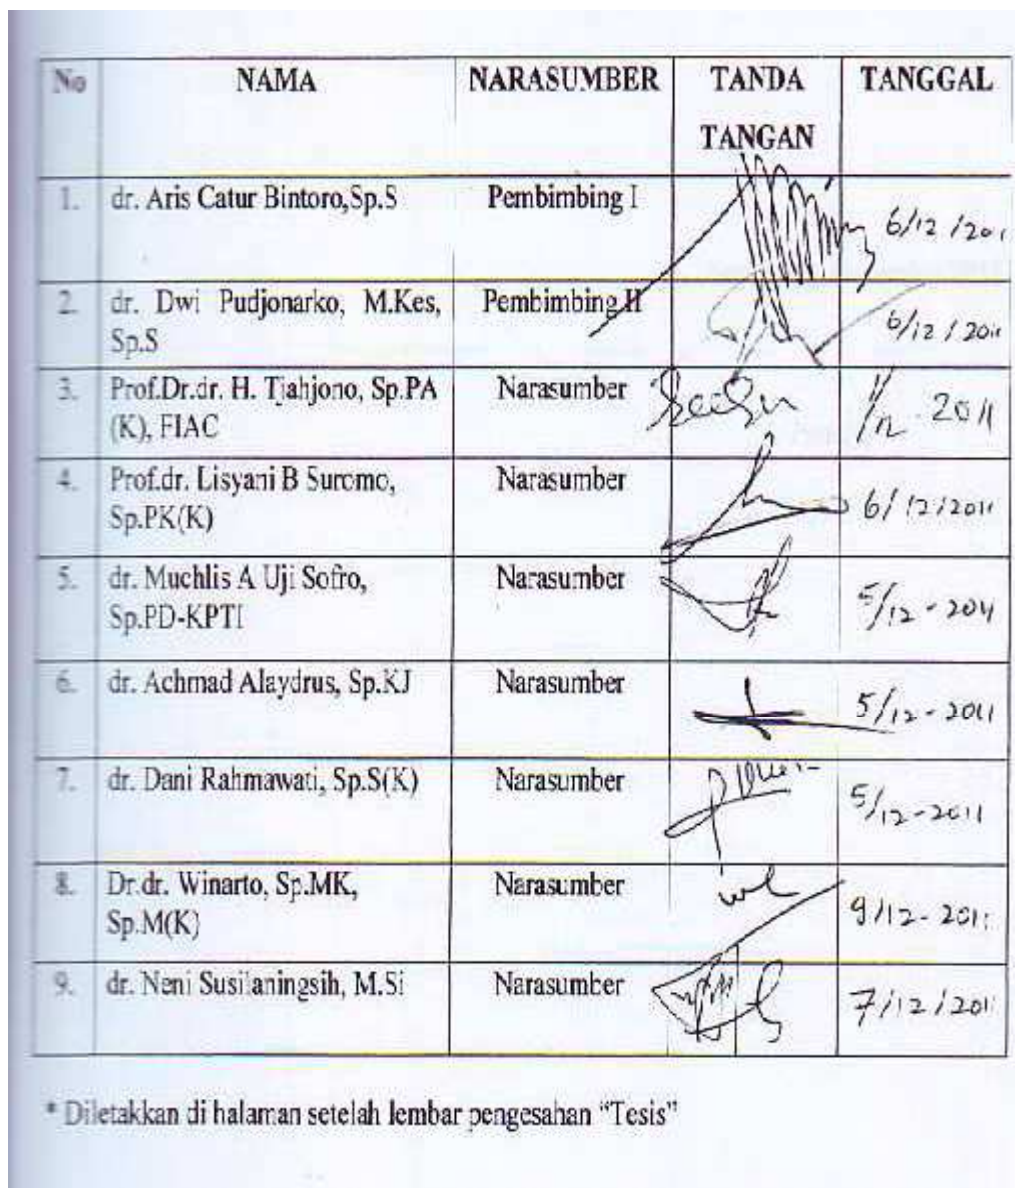 No NAMA NARASUMBER TANDA TANGAN TANGGAL
1. dr. Aris Catur Bintoro,Sp.S Pembimbing I 6/12/2011
2. dr. Dwi Pudjonarko, M.Kes, Sp.S Pembimbing II 6/12/2011
3. Prof.Dr.dr. H. Tjahjono, Sp.PA (K), FIAC Narasumber 2011
4. Prof.dr. Lisyani B Suromo, Sp.PK(K) Narasumber 6/12/2011
5. dr. Muchlis A Uji Sofro, Sp.PD-KPTI Narasumber 5/12-2011
6. dr. Achmad Alaydrus, Sp.KJ Narasumber 5/12-2011
7. dr. Dani Rahmawati, Sp.S(K) Narasumber 5/12-2011
8. Dr.dr. Winarto, Sp.MK, Sp.M(K) Narasumber 9/12-2011
9. dr. Neni Susilaningsih, M.Si Narasumber 7/12/2011
* Diletakkan di halaman setelah lembar pengesahan “Tesis”